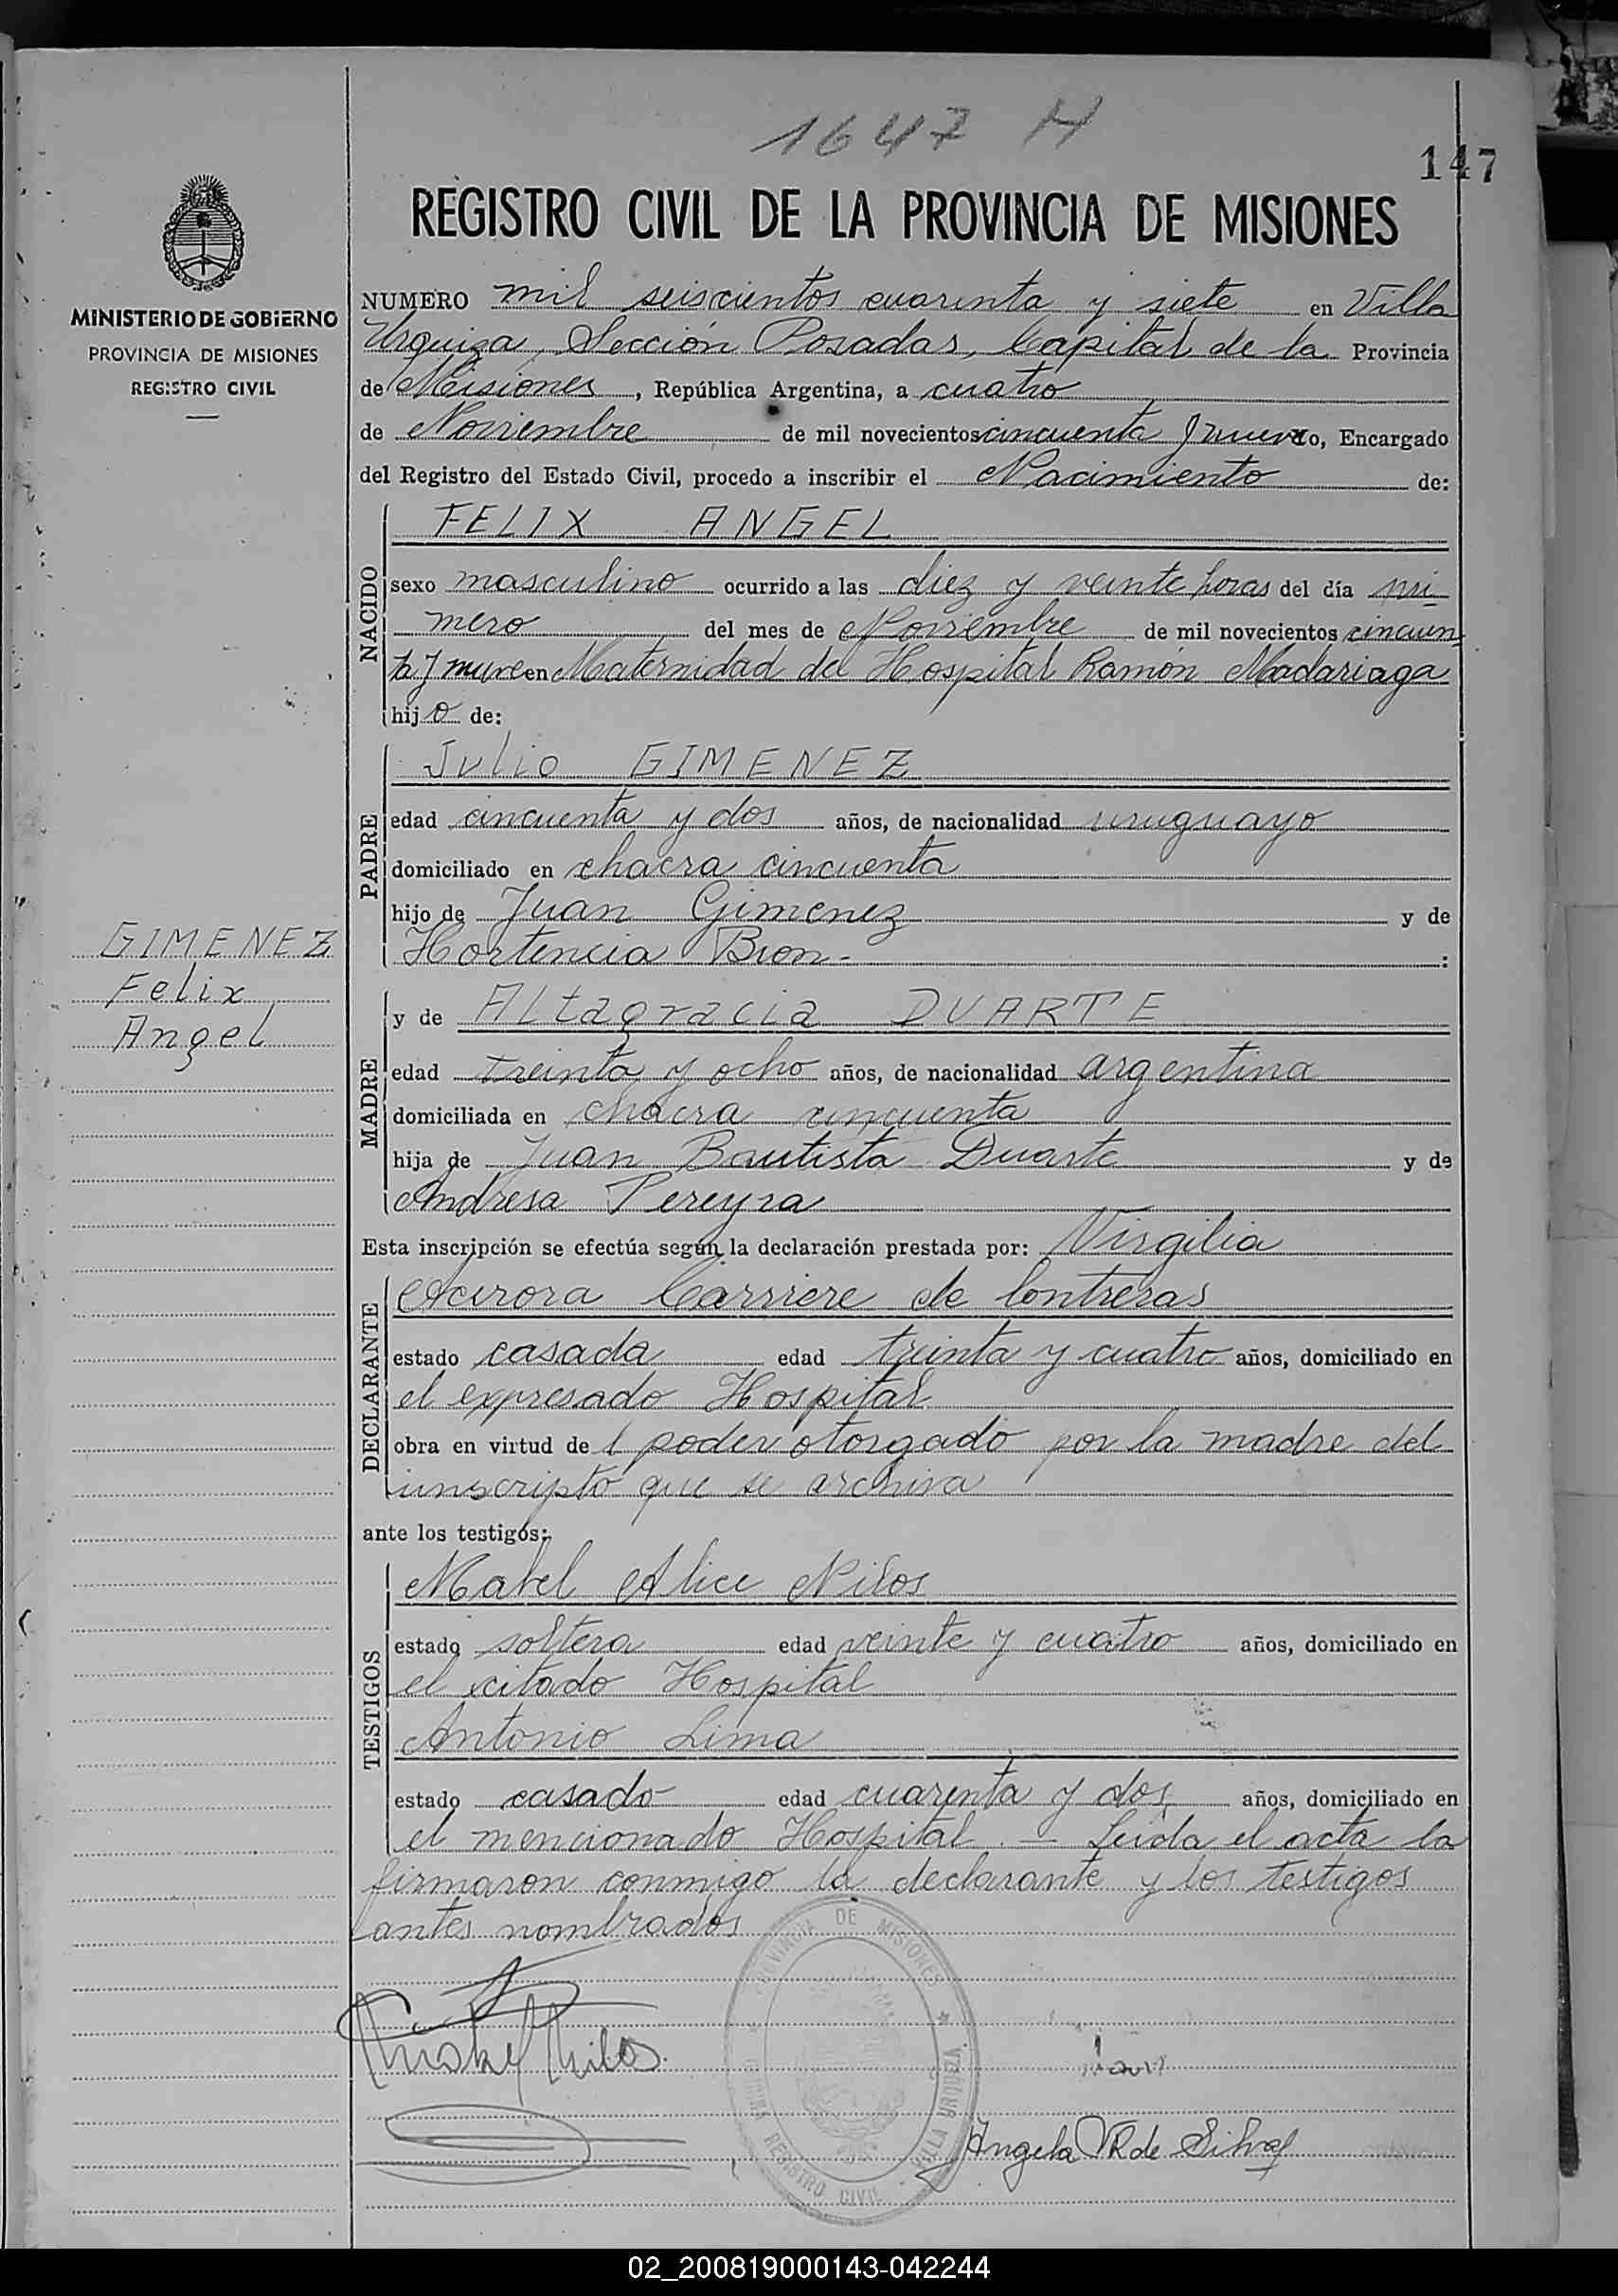 1647 H
147
REGISTRO CIVIL DE LA PROVINCIA DE MISIONES
MINISTERIO DE GOBIERNO
PROVINCIA DE MISIONES
REGISTRO CIVIL
NUMERO mil seiscientos cuarenta y siete en Villa
Urquiza, Sección Posadas, Capital de la Provincia
de Misiones, República Argentina, a cuatro
de Noviembre de mil novecientos cincuenta y nueve, Encargado
del Registro del Estado Civil, procedo a inscribir el Nacimiento de:
NACIDO
FELIX ANGEL
sexo masculino ocurrido a las diez y veinte horas del día pri-
mero del mes de Noviembre de mil novecientos cincuen-
ta y nueve en Maternidad del Hospital Ramón Madariaga
hijo de:
PADRE
Julio GIMENEZ
edad cincuenta y dos años, de nacionalidad uruguayo
domiciliado en chacra cincuenta
hijo de Juan Gimenez y de
Hortencia Bron-:
GIMENEZ
Felix
Angel
MADRE
y de Altagracia DUARTE
edad treinta y ocho años, de nacionalidad argentina
domiciliada en chacra cincuenta
hija de Juan Bautista Duarte y de
Andresa Pereyra
Esta inscripción se efectúa según la declaración prestada por: Virgilia
DECLARANTE
Aurora Carriere de Contreras
estado casada edad treinta y cuatro años, domiciliado en
el expresado Hospital
obra en virtud del poder otorgado por la madre del
inscripto que se archiva
ante los testigos:
TESTIGOS
Mabel Alice Nilos
estado soltera edad veinte y cuatro años, domiciliado en
el citado Hospital
Antonio Lima
estado casado edad cuarenta y dos años, domiciliado en
el mencionado Hospital. — Leida el acta la
firmaron conmigo la declarante y los testigos
antes nombrados
PROVINCIA DE MISIONES
OFICINA REGISTRO CIVIL VILLA URQUIZA
Mabel Nilos
Angela de Silva
02_200819000143-042244